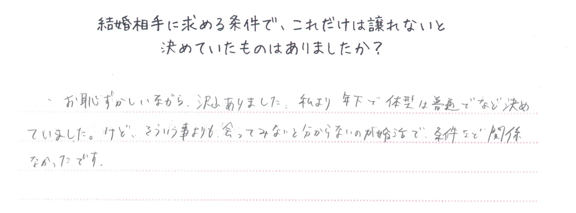 結婚相手に求める条件で、これだけは譲れないと
決めていたものはありましたか？
・お恥ずかしいながら、沢山ありました。私より年下で体型は普通でなど決め
ていました。けど、そういう事よりも、会ってみないと分からないのが婚活で、条件など関係
なかったです。